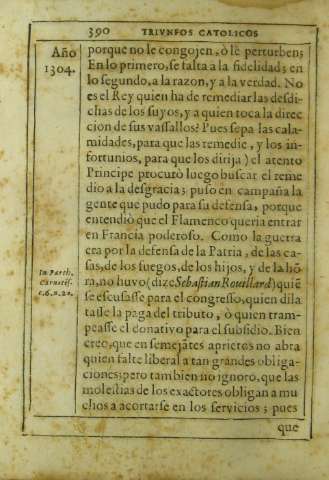 390 TRIVNFOS CATOLICOS
Año
1304.
porque no le congojen, ò le perturben;
En lo primero, se falta a la fidelidad; en
lo segundo, a la razon, y a la verdad. No
es el Rey quien ha de remediar las desdi-
chas de los suyos, y a quien toca la direc
cion de sus vassallos? Pues sepa las cala-
midades, para que las remedie, y los in-
fortunios, para que los dirija) el atento
Principe procurò luego buscar el reme
dio a la desgracia; puso en campaña la
gente que pudo para su defensa, porque
entendiò que el Flamenco queria entrar
en Francia poderoso. Como la guerra
era por la defensa de la Patria, de las ca-
sas, de los fuegos, de los hijos, y de la hõ
ra, no huvo (dize Sebastian Rouillard) quiẽ
se escusasse para el congresso, quien dila
tasse la paga del tributo, ò quien tram-
peasse el donativo para el subsidio. Bien
creo, que en semejãtes aprietos no abra
quien falte liberal a tan grandes obliga-
ciones; pero tambien no ignoro, que las
molestias de los exactores obligan a mu
chos a acortarse en los servicios; pues
que
In Parth.
Carnotis.
c.6.n.22.